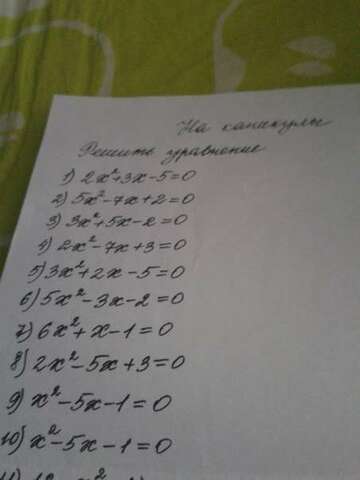 На каникулы
Решить уравнение
1) 2x²+3x-5=0
2) 5x²-7x+2=0
3) 3x²+5x-2=0
4) 2x²-7x+3=0
5) 3x²+2x-5=0
6) 5x²-3x-2=0
7) 6x²+x-1=0
8) 2x²-5x+3=0
9) x²-5x-1=0
10) x²-5x-1=0